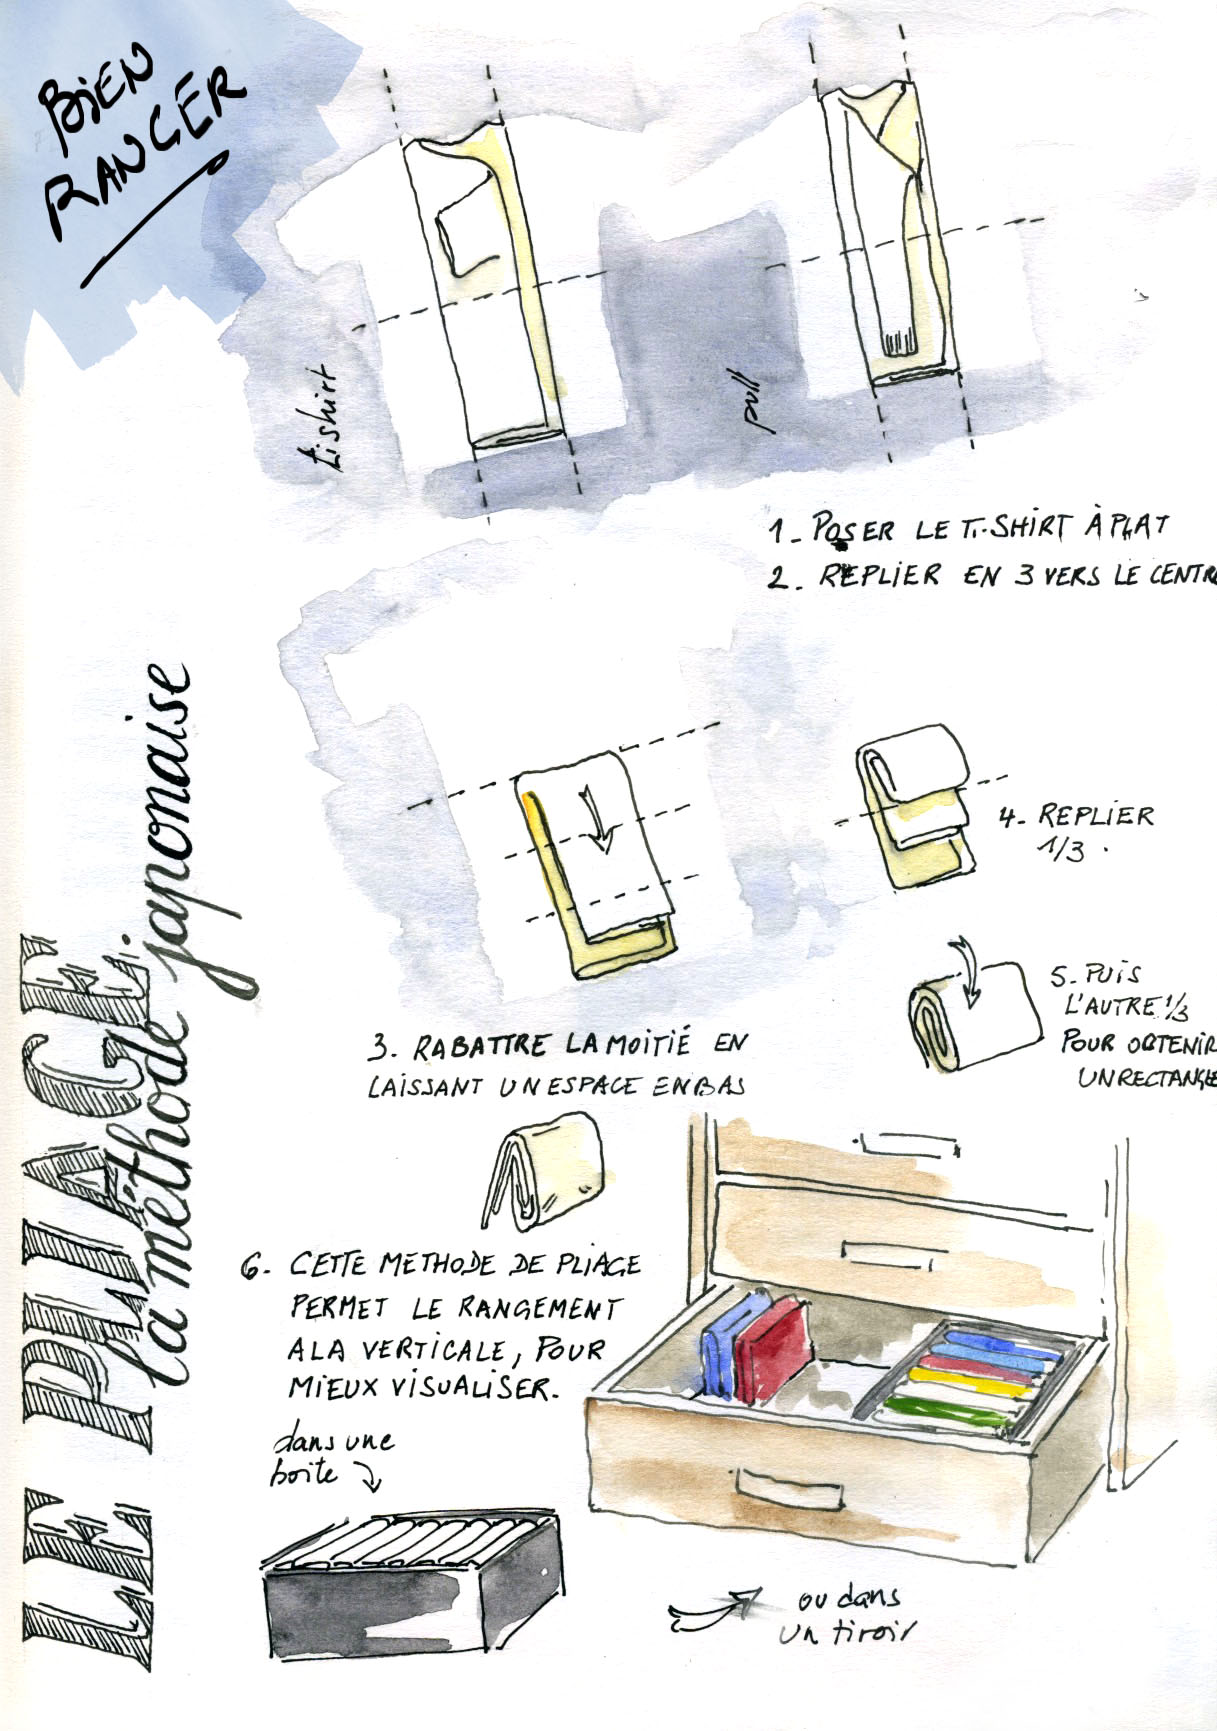 BiEN
RANGER
ti shirt
pull
1- POSER LE Ti-SHiRT À PLAT
2- REPLiER EN 3 VERS LE CENTRE
LE PLIAGE
la méthode japonaise
4- REPLiER
1/3.
3. RABATTRE LA MOiTiÉ EN
LAiSSANT UN ESPACE EN BAS
5-PUiS
L'AUTRE 1/3
POUR OBTENiR
UN RECTANGLE
6- CETTE METHODE DE PLiAGE
PERMET LE RANGEMENT
A LA VERTiCALE, POUR
MiEUX ViSUALiSER.
dans une
boite
ou dans
un tiroir